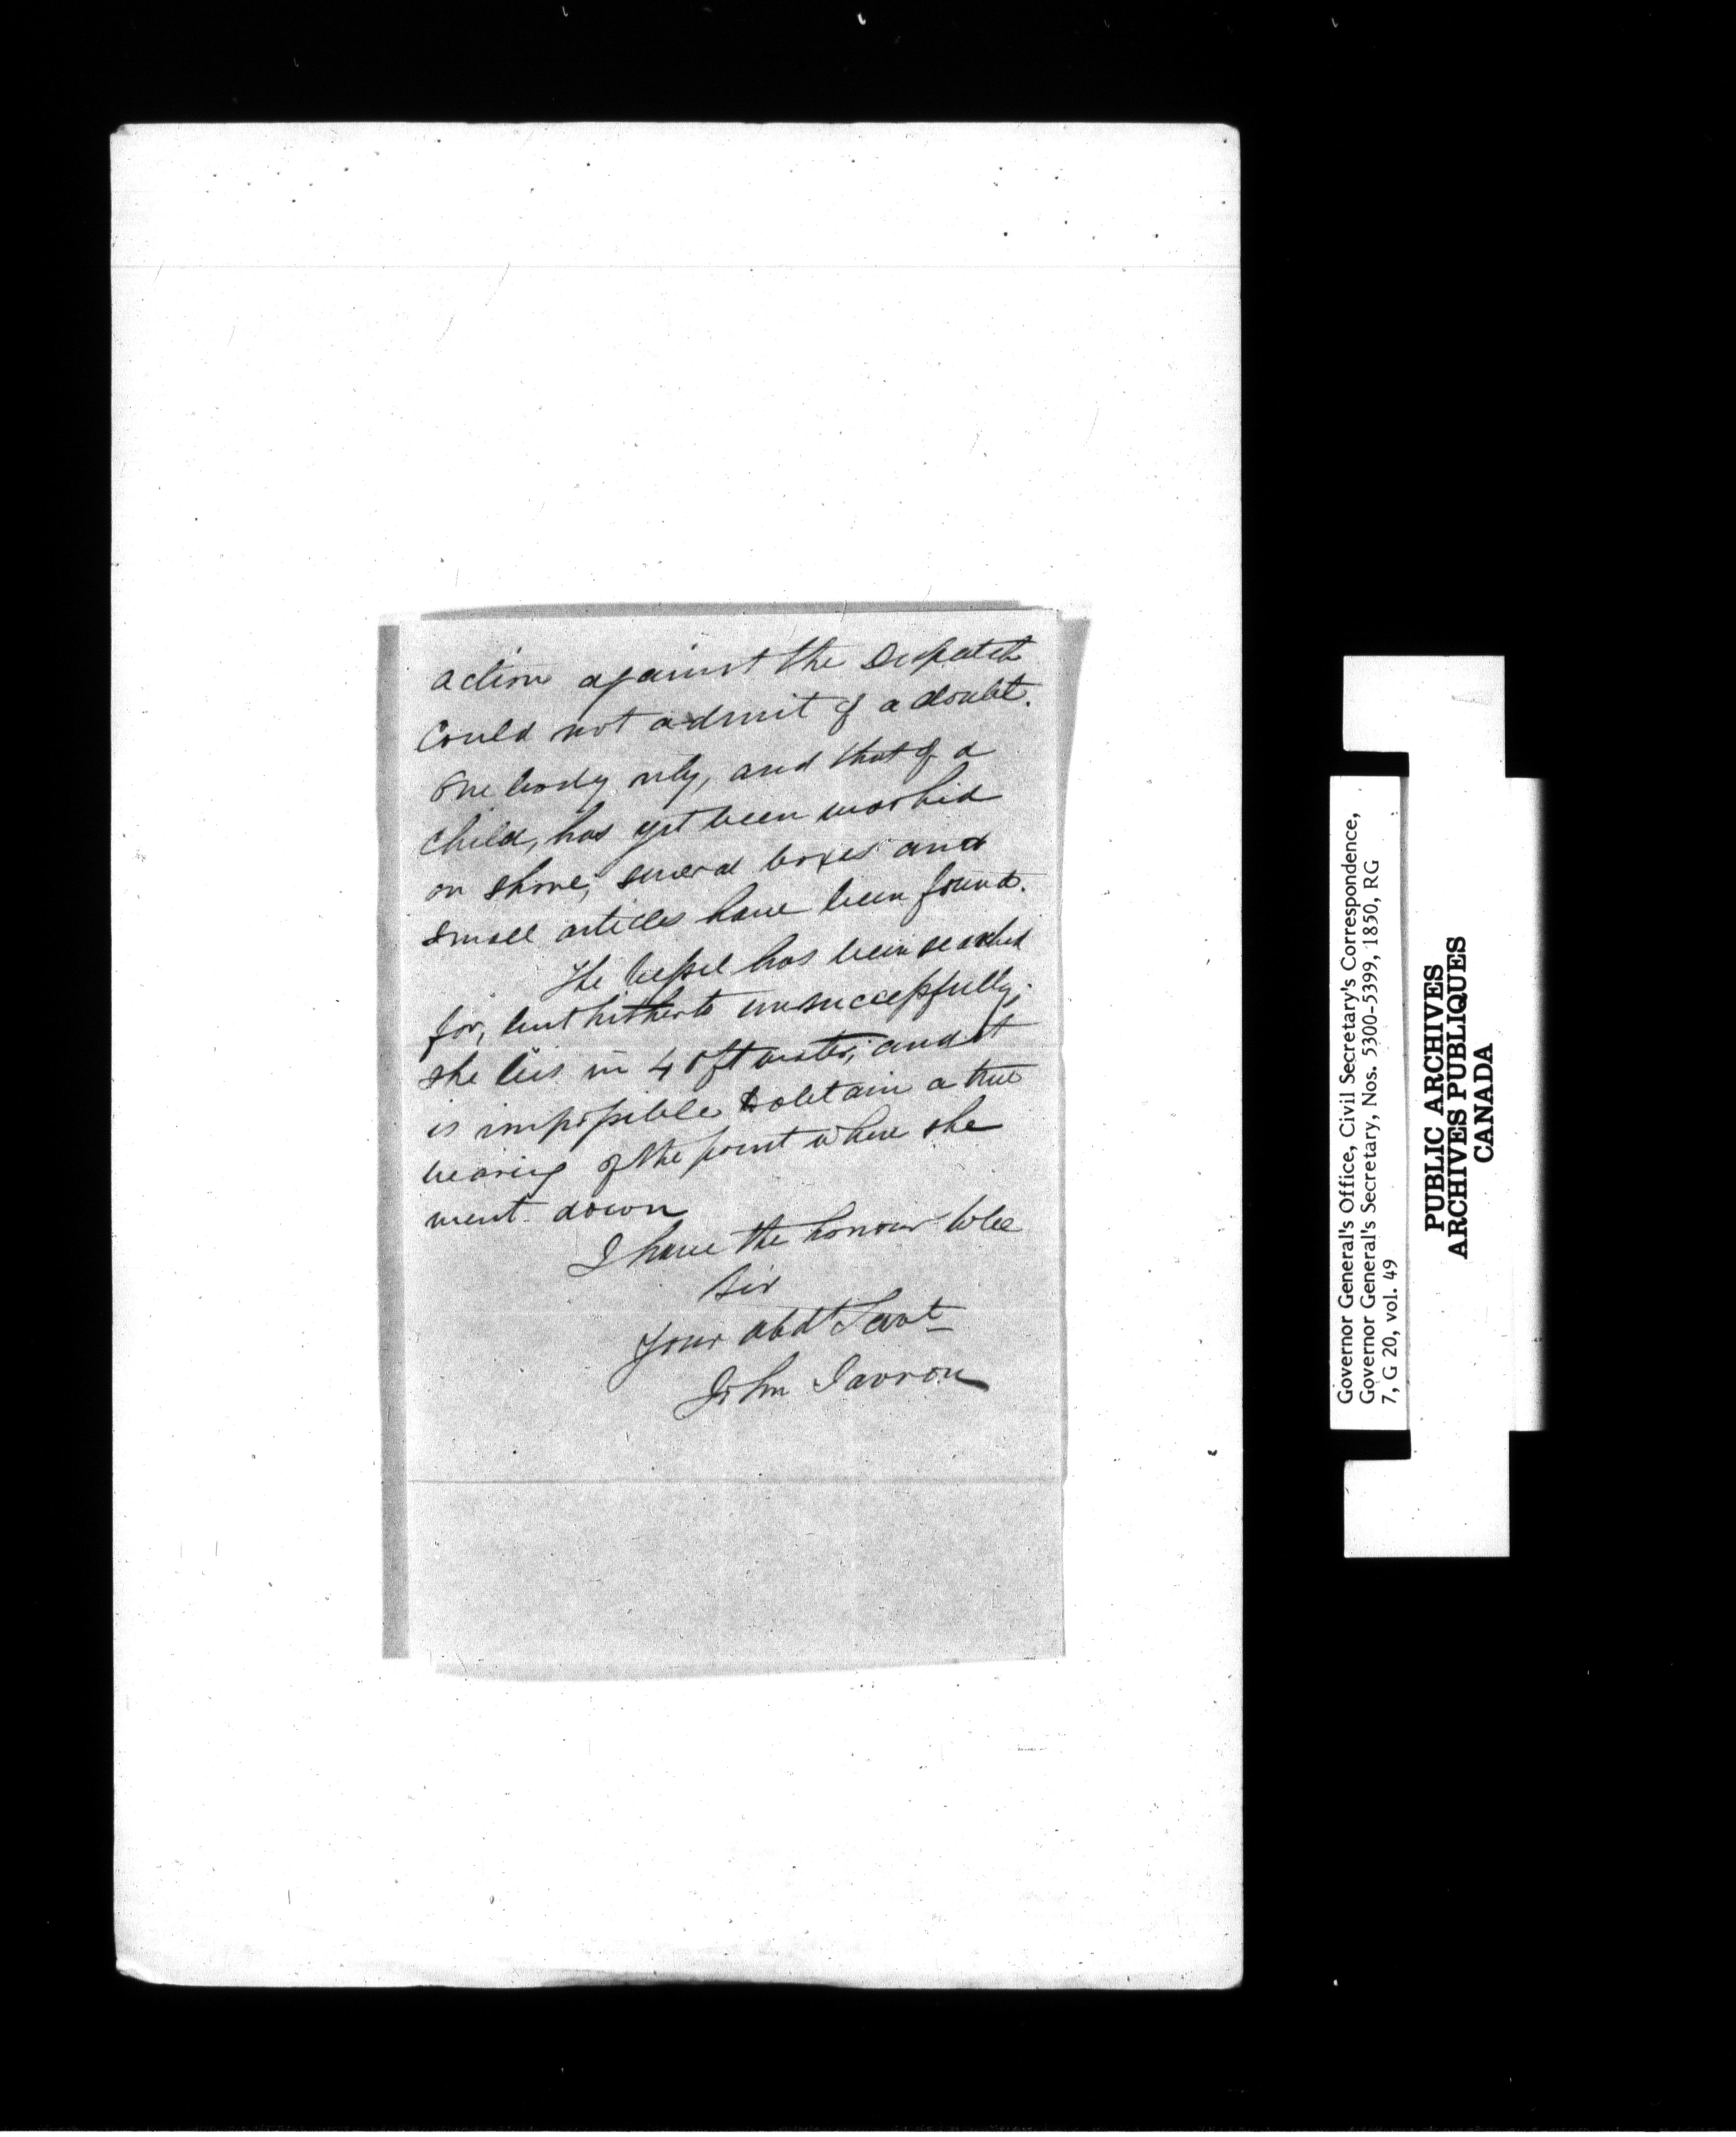 action against the Despatch
Could not admit of a doubt.
One body only, and that of a
child, has yet been washed
on shore; several boxes and
small articles have been found.
The Vessel has been searched
for, but hitherto unsuccessfully;
she lies in 40 ft water; and it
is impossible to obtain a true
bearing of the point where she
went down
I have the honour to be
Sir
Your obdt Servt
John
Governor General's Office, Civil Secretary's Correspondence,
Governor General's Secretary, Nos. 5300-5399, 1850, RG
7, G 20, vol. 49
PUBLIC ARCHIVES
ARCHIVES PUBLIQUES
CANADA